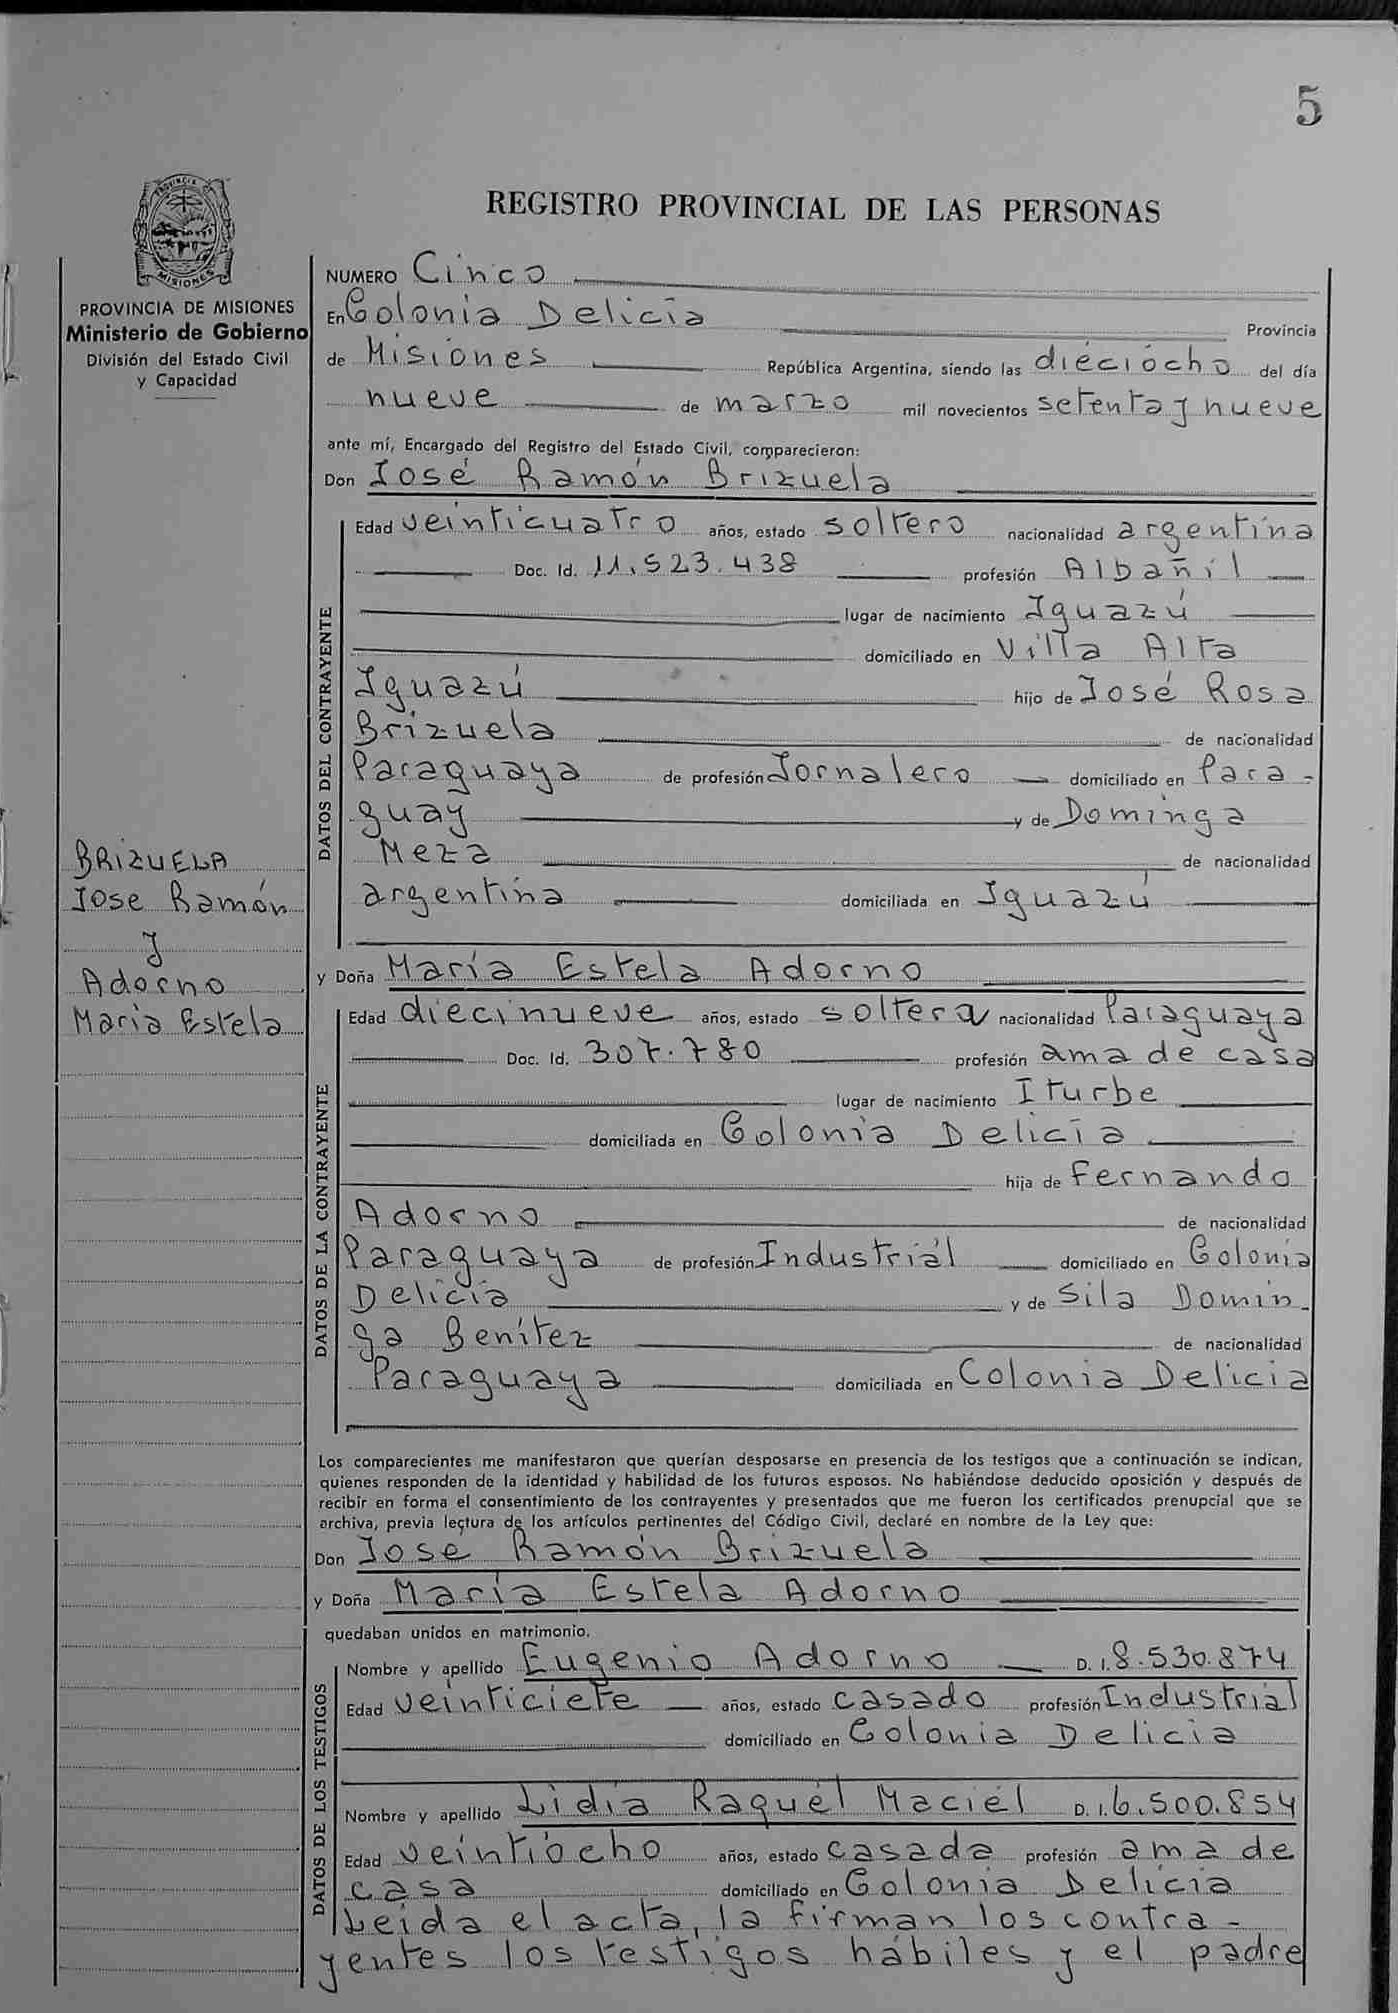 5
REGISTRO PROVINCIAL DE LAS PERSONAS
PROVINCIA
MISIONES
PROVINCIA DE MISIONES
Ministerio de Gobierno
División del Estado Civil
y Capacidad
BRIZUELA
Jose Ramón
y
Adorno
Maria Estela
NUMERO Cinco
En Colonia Delicia Provincia
de Misiones República Argentina, siendo las dieciocho del día
nueve de marzo mil novecientos setenta y nueve
ante mí, Encargado del Registro del Estado Civil, comparecieron:
Don José Ramón Brizuela
DATOS DEL CONTRAYENTE
Edad veinticuatro años, estado soltero nacionalidad argentina
Doc. Id. 11.523.438 profesión Albañil
lugar de nacimiento Iguazú
domiciliado en Villa Alta
Iguazú hijo de José Rosa
Brizuela de nacionalidad
Paraguaya de profesión Jornalero domiciliado en Para-
guay y de Dominga
Meza de nacionalidad
argentina domiciliada en Iguazú
y Doña María Estela Adorno
DATOS DE LA CONTRAYENTE
Edad diecinueve años, estado soltera nacionalidad Paraguaya
Doc. Id. 307.780 profesión ama de casa
lugar de nacimiento Iturbe
domiciliada en Colonia Delicia
hija de Fernando
Adorno de nacionalidad
Paraguaya de profesión Industrial domiciliado en Colonia
Delicia y de Sila Domin-
ga Benítez de nacionalidad
Paraguaya domiciliada en Colonia Delicia
Los comparecientes me manifestaron que querían desposarse en presencia de los testigos que a continuación se indican,
quienes responden de la identidad y habilidad de los futuros esposos. No habiéndose deducido oposición y después de
recibir en forma el consentimiento de los contrayentes y presentados que me fueron los certificados prenupcial que se
archiva, previa lectura de los artículos pertinentes del Código Civil, declaré en nombre de la Ley que:
Don Jose Ramón Brizuela
y Doña María Estela Adorno
quedaban unidos en matrimonio.
DATOS DE LOS TESTIGOS
Nombre y apellido Eugenio Adorno D. I. 8.530.874
Edad veinticiete años, estado casado profesión Industrial
domiciliado en Colonia Delicia
Nombre y apellido Lidia Raquel Maciel D. I. 6.500.854
Edad veintiocho años, estado casada profesión ama de
casa domiciliado en Colonia Delicia
Leida el acta, la firman los contra-
yentes los testigos hábiles y el padre